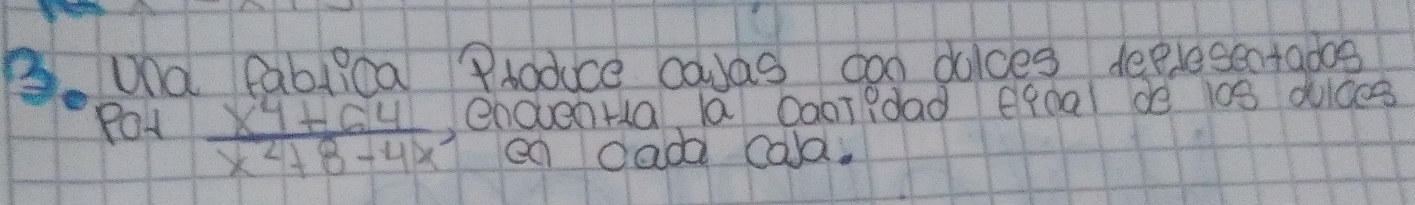 3. Una fabrica Produce cajas con dulces reepresentados
Por x4+64 / x2+8-4x, encuentra la cantidad eqoal de los dulces
en cada caja.